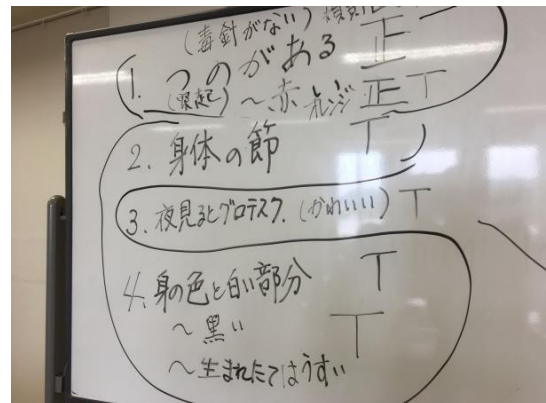 (毒針がない)
1. つのがある 正
(突起) ~赤 オレンジ 正 T
2. 身体の節 T
3. 夜見るとグロテスク. (かわいい) T
4. 身の色と白い部分 T
~黒い T
~生まれたてはうすい